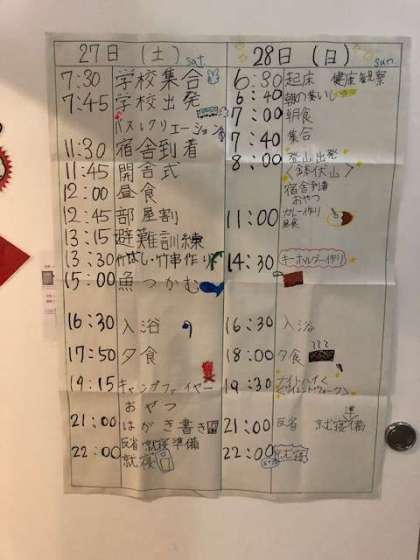 27日 (土) sat
7:30 学校集合
7:45 学校出発
バスレクリエーション
11:30 宿舎到着
11:45 開舎式
12:00 昼食
12:45 部屋割
13:15 避難訓練
13:30 竹ばし・竹串作り
15:00 魚つかむ
16:30 入浴
17:50 夕食
19:15 キャンプファイヤー
おやつ
21:00 はがき書き
反省 就寝準備
22:00 就寝
28日 (日) sun
6:30 起床 健康観察
6:40 朝の集い
7:00 朝食
7:40 集合
8:00 登山出発
<鉢伏山>
宿舎到着
おやつ
11:00 カレー作り
昼食
14:30 キーホルダー作り
16:30 入浴
18:00 夕食
19:30
21:00 反省
22:00